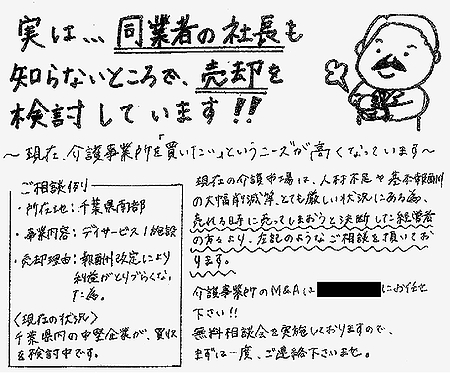 実は、、、同業者の社長も
知らないところで、売却を
検討しています!!
～現在、介護事業所を「買いたい」というニーズが高くなっています～
ご相談例
・所在地：千葉県南部
・事業内容：デイサービス1施設
・売却理由：報酬改定により
利益がとりづらくなっ
た為。
〈現在の状況〉
千葉県内の中堅企業が、買収
を検討中です。
現在の介護市場は、人材不足や基本報酬
の大幅削減等、とても厳しい状況にある為、
売れる時に売ってしまおうと決断した経営者
の方々より、左記のようなご相談を頂いてお
ります。
介護事業所のM&Aは にお任せ
下さい!!
無料相談会を実施しておりますので、
まずは一度、ご連絡下さいませ。